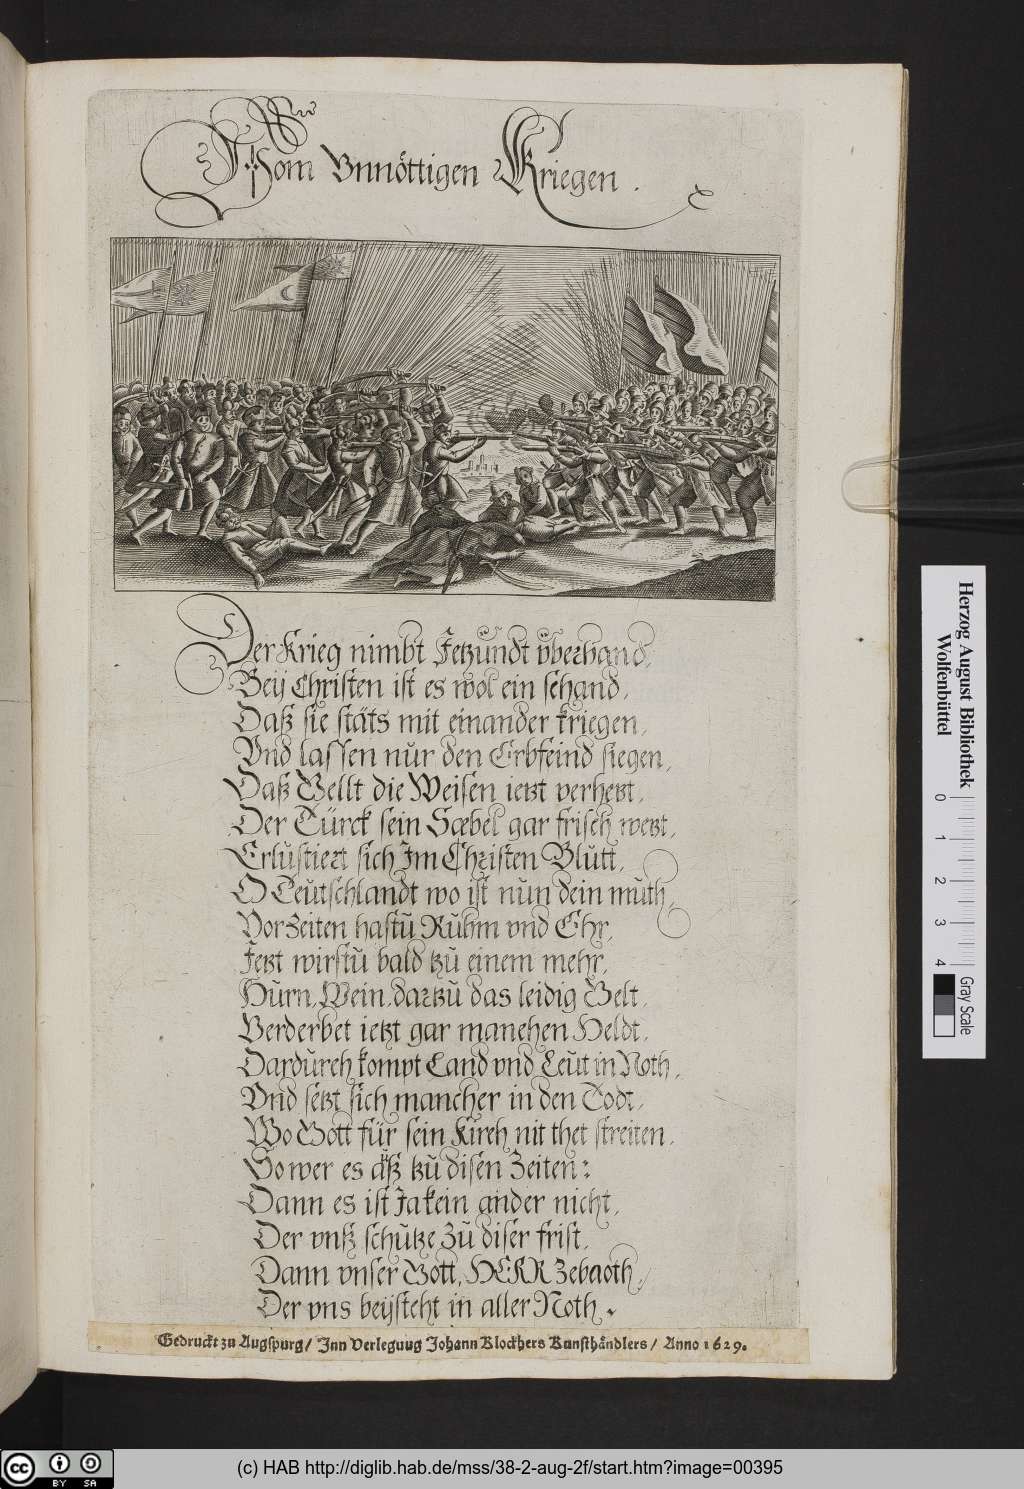 Vom Vnnöttigen Kriegen.
Der Krieg nimbt Jetzundt vberhand,
Beÿ Christen ist es wol ein schand,
Daß sie stäts mit einander kriegen,
Vnd lassen nur den Erbfeind siegen,
Daß Gellt die Weisen ietzt verhetzt,
Der Türck sein Sæbel gar frisch wetzt,
Erlustiert sich Im Christen Blutt,
O Teutschlandt wo ist nun dein muth,
Vor Zeiten hastu Ruhm vnd Ehr,
Jetzt wirstu bald tzu einem mehr,
Hurn, Wein, dartzu das leidig Gelt,
Verderbet ietzt gar manchen Heldt,
Dardurch kompt Land vnd Leut in Noth,
Vnd setzt sich mancher in den Todt,
Wo Gott für sein Kirch nit thet streiten,
So wer es auß tzu disen Zeiten:
Dann es ist Ja kein ander nicht,
Der vnß schutze Zu diser frist,
Dann vnser Gott, HERR Zebaoth,
Der vns beÿsteht in aller Noth.
Gedruckt zu Augspurg/ Inn Verleguug Johann Klockhers Kunsthändlers/ Anno 1629.
Herzog August Bibliothek
Wolfenbüttel
0 1 2 3 4
Gray Scale
cc BY SA
(c) HAB http://diglib.hab.de/mss/38-2-aug-2f/start.htm?image=00395